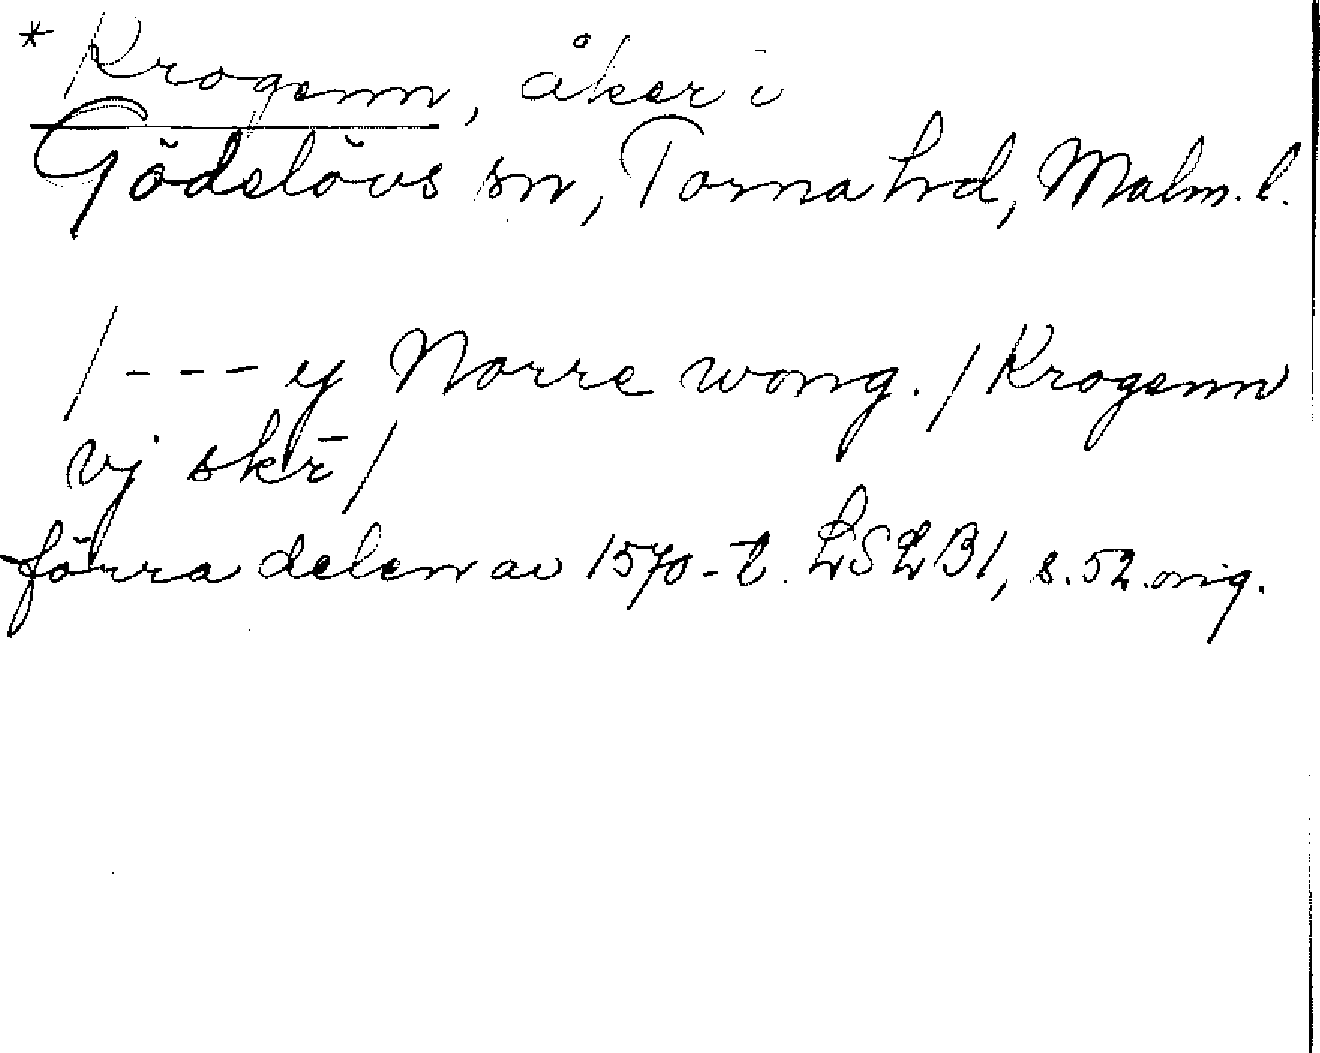 * Krogenn, åker i
Gödelövs sn, Torna hd, Malm. l.
/--- y Norre wong. / Krogenn
vj skr̄ /
förra delen av 1570-t. LSLB1, s. 52. orig.